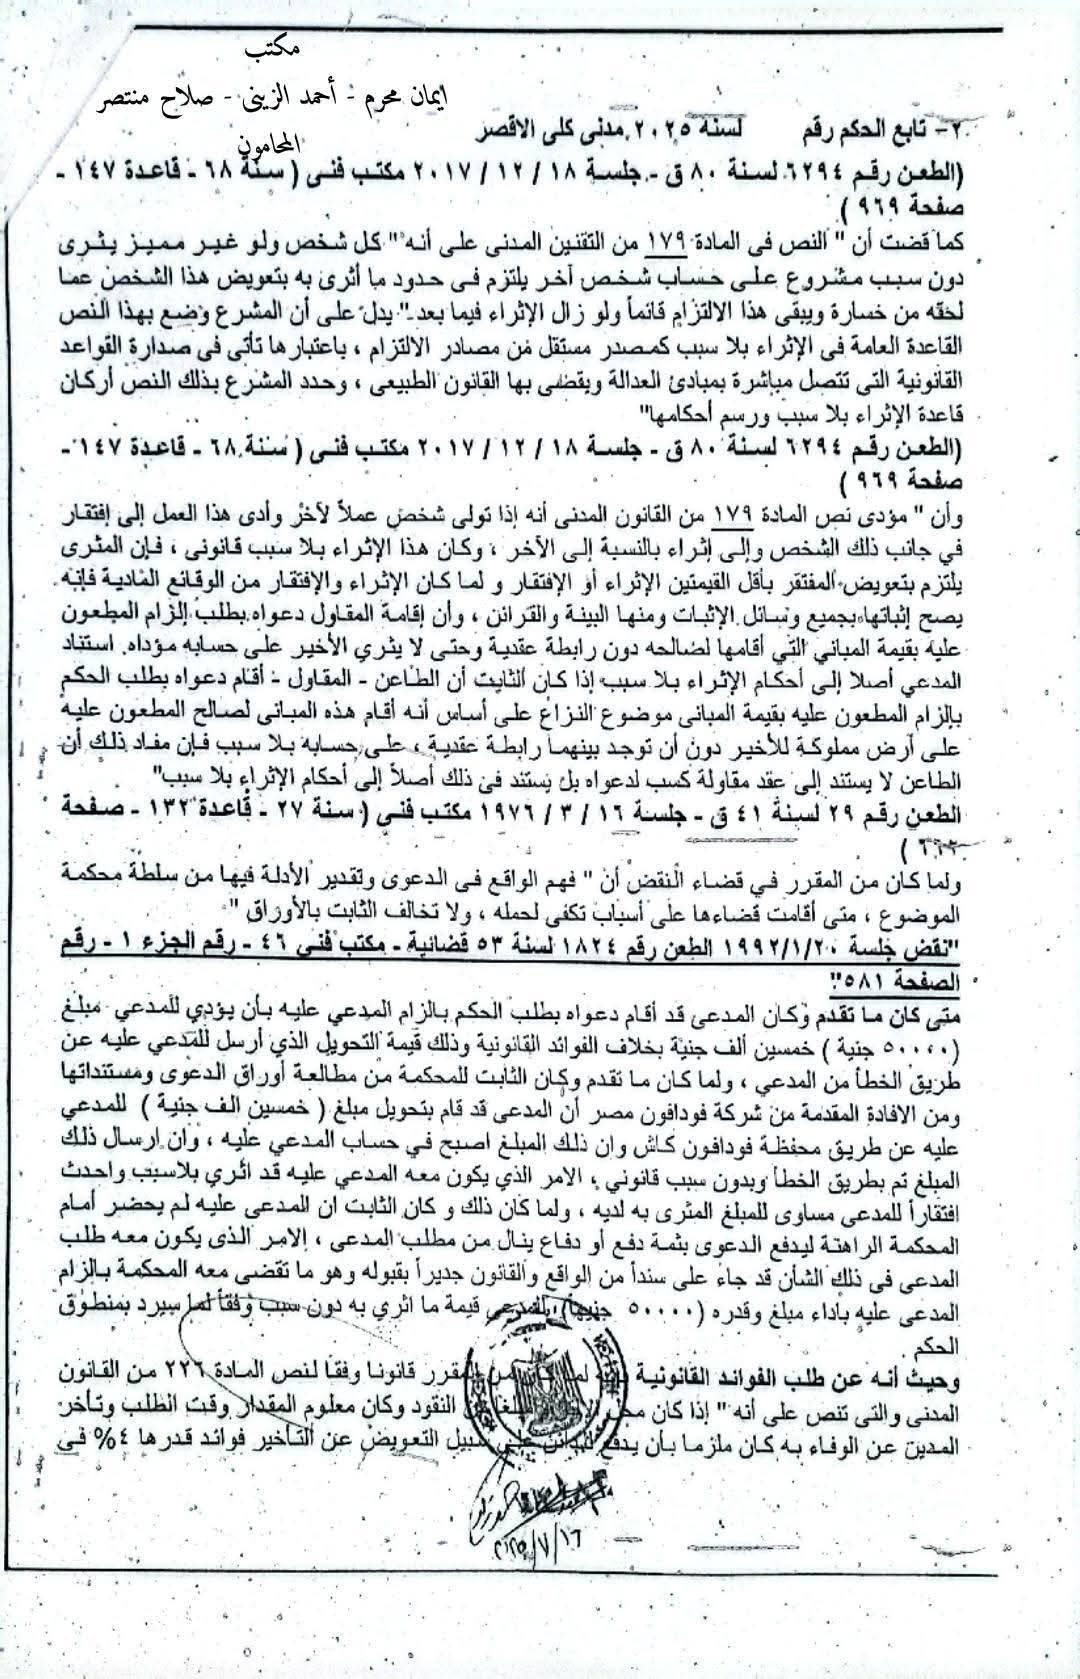 مكتب
ايمان محرم - أحمد الزينى - صلاح منتصر
المحامون
٢- تابع الحكم رقم لسنه ٢٠٢٥ مدنى كلى الاقصر
(الطعن رقم ٦٢٩٤ لسنة ٨٠ ق - جلسة ١٨ / ١٢ / ٢٠١٧ مكتب فنى ( سنة ٦٨ - قاعدة ١٤٧ -
صفحة ٩٦٩ )
كما قضت أن " النص فى المادة ١٧٩ من التقنين المدنى على أنه " كل شخص ولو غير مميز يثرى
دون سبب مشروع على حساب شخص آخر يلتزم فى حدود ما أثرى به بتعويض هذا الشخص عما
لحقه من خسارة ويبقى هذا الالتزام قائماً ولو زال الإثراء فيما بعد " يدل على أن المشرع وضع بهذا النص
القاعدة العامة فى الإثراء بلا سبب كمصدر مستقل من مصادر الالتزام ، باعتبارها تأتى فى صدارة القواعد
القانونية التى تتصل مباشرة بمبادئ العدالة ويقضى بها القانون الطبيعى ، وحدد المشرع بذلك النص أركان
قاعدة الإثراء بلا سبب ورسم أحكامها"
(الطعن رقم ٦٢٩٤ لسنة ٨٠ ق - جلسة ١٨ / ١٢ / ٢٠١٧ مكتب فنى ( سنة ٦٨ - قاعدة ١٤٧ -
صفحة ٩٦٩ )
وأن " مؤدى نص المادة ١٧٩ من القانون المدنى أنه إذا تولى شخص عملاً لآخر وأدى هذا العمل إلى إفتقار
في جانب ذلك الشخص وإلى إثراء بالنسبة إلى الآخر ، وكان هذا الإثراء بلا سبب قانونى ، فإن المثرى
يلتزم بتعويض المفتقر بأقل القيمتين الإثراء أو الإفتقار و لما كان الإثراء والإفتقار من الوقائع المادية فإنه
يصح إثباتها بجميع وسائل الإثبات ومنها البينة والقرائن ، وأن إقامة المقاول دعواه بطلب إلزام المطعون
عليه بقيمة المباني التي أقامها لصالحه دون رابطة عقدية وحتى لا يثري الأخير على حسابه مؤداه. استناد
المدعي أصلا إلى أحكام الإثراء بلا سبب إذا كان الثابت أن الطاعن - المقاول - أقام دعواه بطلب الحكم
بإلزام المطعون عليه بقيمة المبانى موضوع النزاع على أساس أنه أقام هذه المبانى لصالح المطعون عليه
على أرض مملوكة للأخير دون أن توجد بينهما رابطة عقدية ، على حسابه بلا سبب فإن مفاد ذلك أن
الطاعن لا يستند إلى عقد مقاولة كسب لدعواه بل يستند فى ذلك أصلاً إلى أحكام الإثراء بلا سبب"
الطعن رقم ٢٩ لسنة ٤١ ق - جلسة ١٦ / ٣ / ١٩٧٦ مكتب فنى ( سنة ٢٧ - قاعدة ١٣٢ - صفحة
)
ولما كان من المقرر في قضاء النقض أن " فهم الواقع فى الدعوى وتقدير الأدلة فيها من سلطة محكمة
الموضوع ، متى أقامت قضاءها على أسباب تكفى لحمله ، ولا تخالف الثابت بالأوراق "
"نقض جلسة ١٩٩٢/١/٢٠ الطعن رقم ١٨٢٤ لسنة ٥٣ قضائية - مكتب فني ٤٦ - رقم الجزء ١ - رقم
الصفحة ٥٨١"
متى كان ما تقدم وكان المدعى قد أقام دعواه بطلب الحكم بالزام المدعي عليه بأن يؤدي للمدعي مبلغ
(٥٠٠٠٠ جنية ) خمسين ألف جنية بخلاف الفوائد القانونية وذلك قيمة التحويل الذي أرسل للمدعي عليه عن
طريق الخطأ من المدعي ، ولما كان ما تقدم وكان الثابت للمحكمة من مطالعة أوراق الدعوى ومستنداتها
ومن الافادة المقدمة من شركة فودافون مصر أن المدعى قد قام بتحويل مبلغ ( خمسين الف جنية ) للمدعي
عليه عن طريق محفظة فودافون كاش وان ذلك المبلغ اصبح في حساب المدعي عليه ، وان ارسال ذلك
المبلغ تم بطريق الخطأ وبدون سبب قانوني ، الامر الذي يكون معه المدعي عليه قد اثري بلاسبب واحدث
افتقاراً للمدعى مساوى للمبلغ المثرى به لديه ، ولما كان ذلك و كان الثابت ان المدعى عليه لم يحضر أمام
المحكمة الراهنة ليدفع الدعوى بثمة دفع أو دفاع ينال من مطلب المدعى ، الامر الذى يكون معه طلب
المدعى فى ذلك الشأن قد جاء على سنداً من الواقع والقانون جديراً بقبوله وهو ما تقضى معه المحكمة بالزام
المدعى عليه باداء مبلغ وقدره (٥٠٠٠٠ جنيها) للمدعى قيمة ما اثري به دون سبب وفقاً لما سيرد بمنطوق
الحكم .
وحيث أنه عن طلب الفوائد القانونية المقرر قانونا وفقا لنص المادة ٢٢٦ من القانون
المدنى والتى تنص على أنه " إذا كان محل النقود وكان معلوم المقدار وقت الطلب وتأخر
المدين عن الوفاء به كان ملزما بأن يدفع على سبيل التعويض عن التأخير فوائد قدرها ٤% فى
٢٠٢٥/٧/١٦